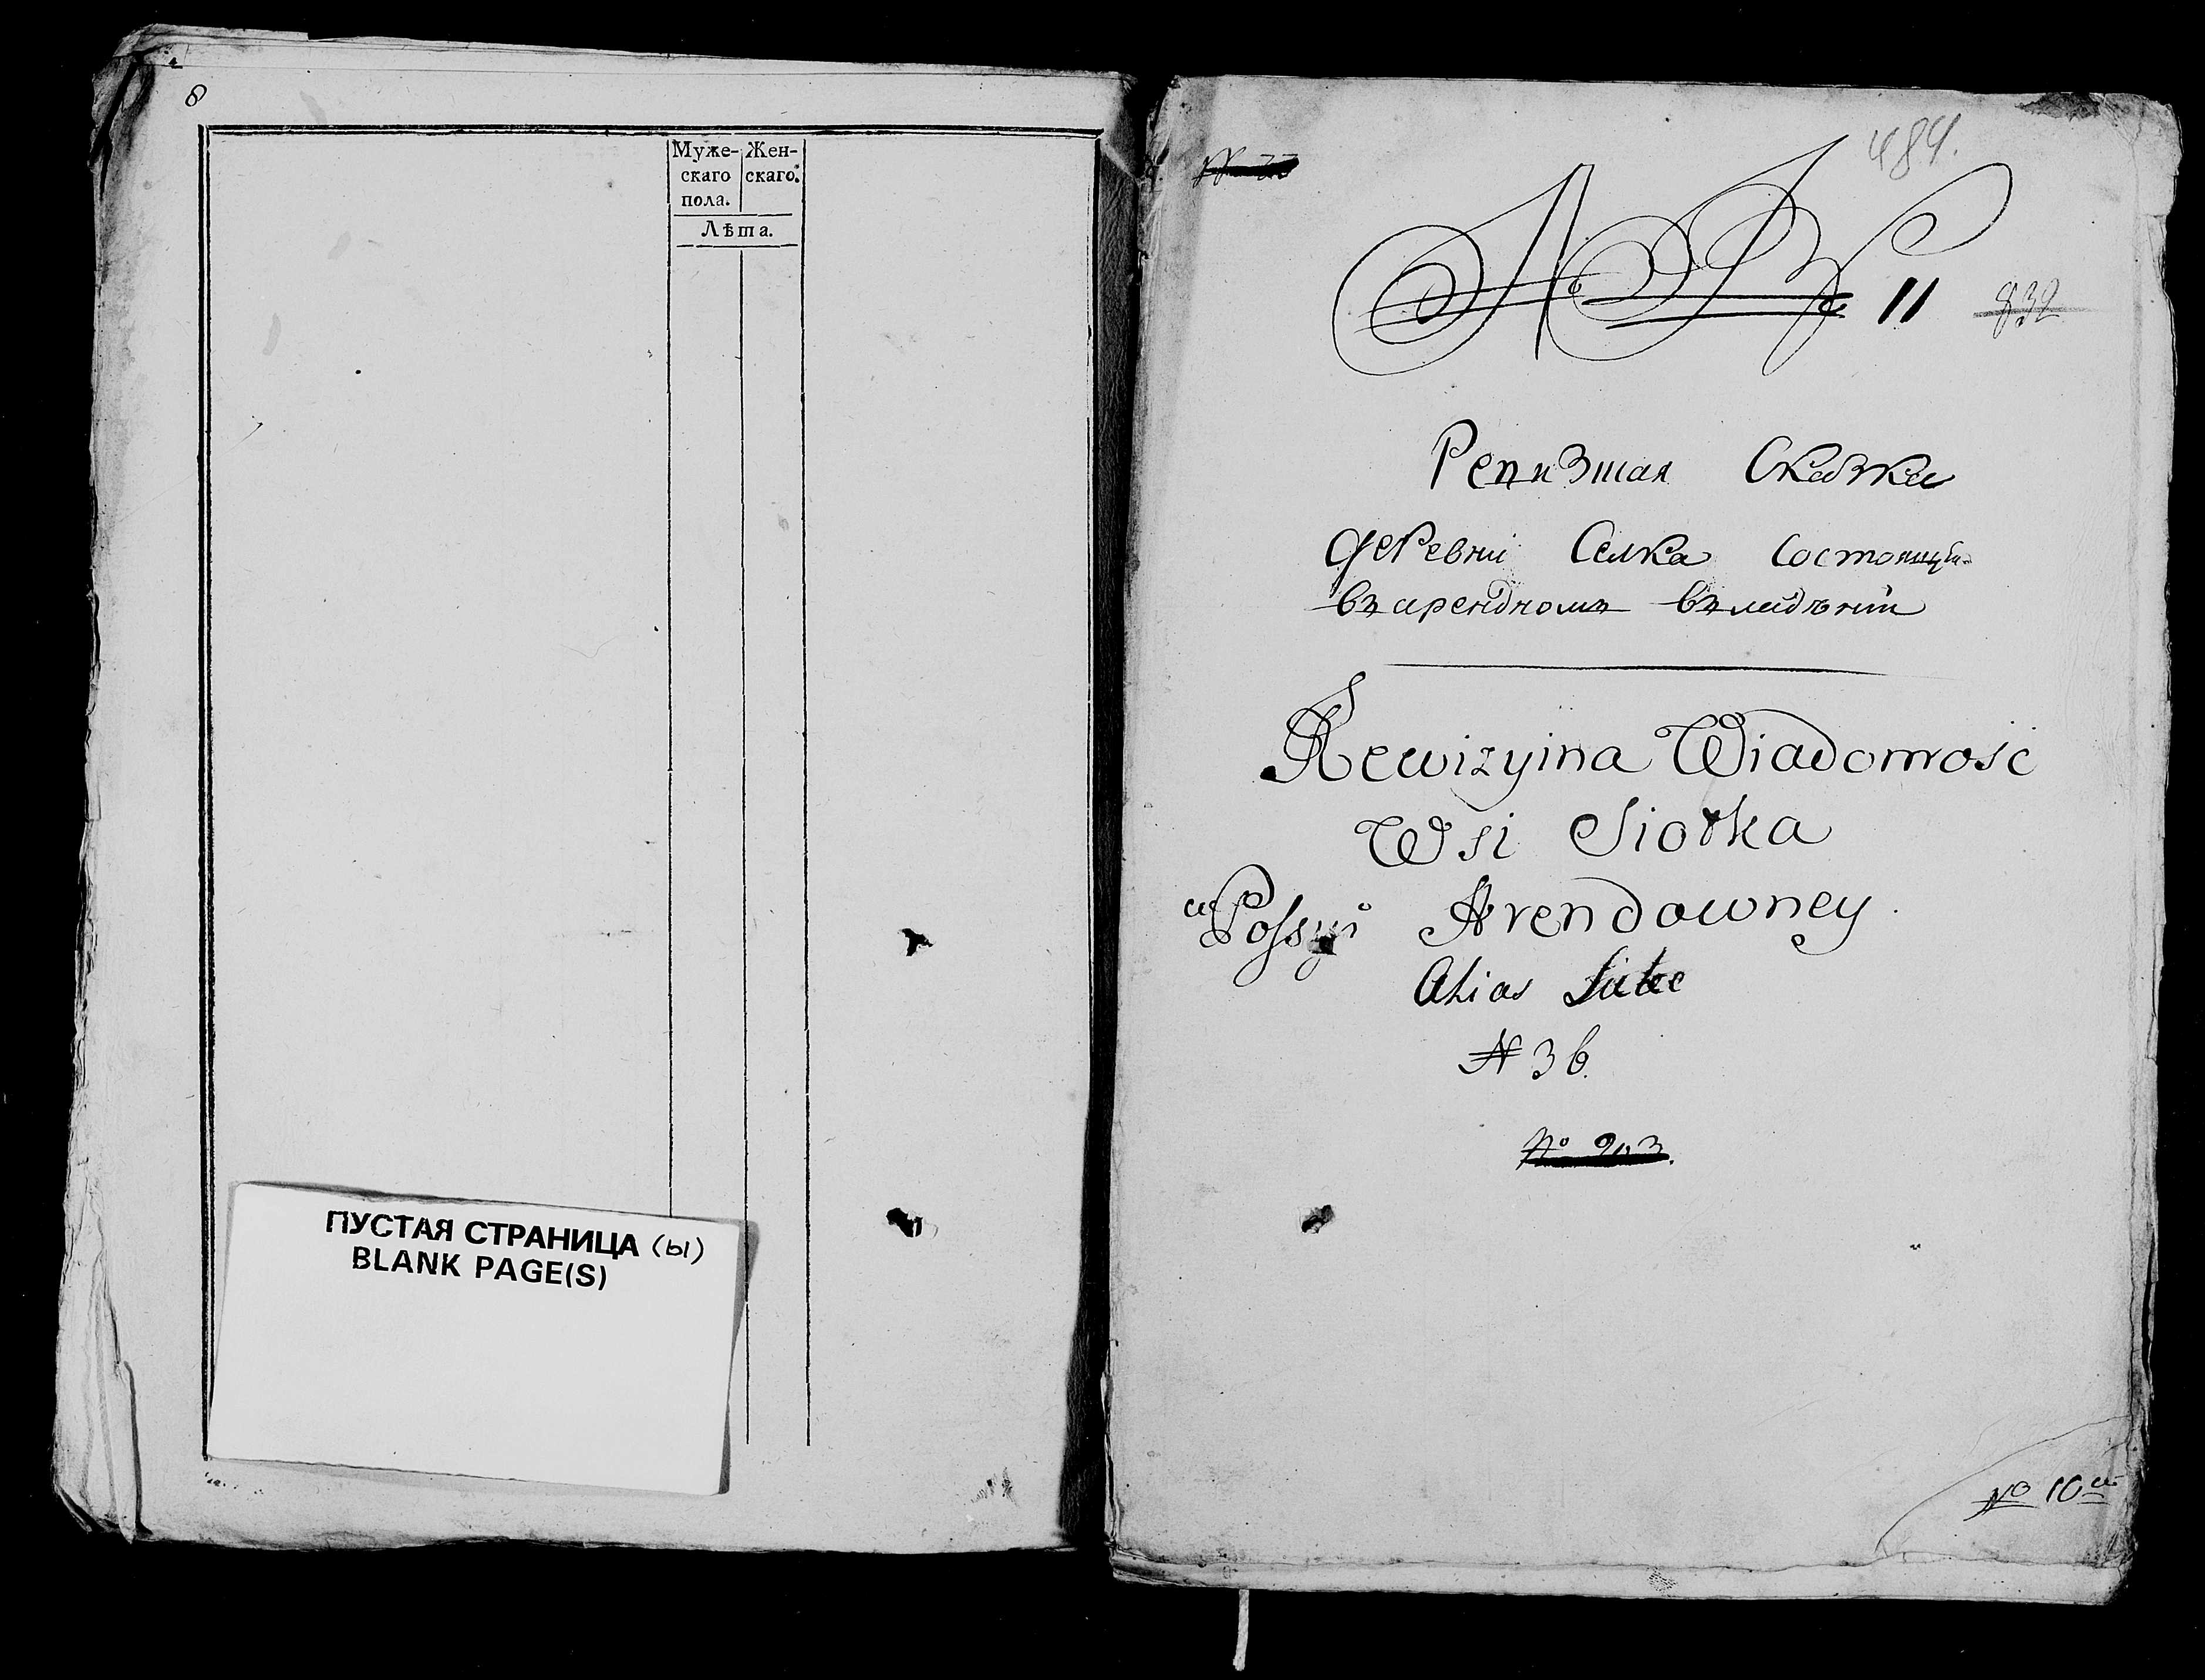 8
Муже- Жен-
скаго скаго.
пола.
Лѣта.
ПУСТАЯ СТРАНИЦА (ы)
BLANK PAGE(S)
484.
11 832
Ревизшая Сказка
деревниСелка состоящи
въ арендномъ въладѣнии
Rewizyina Wiadomosc
Wsi Siołka
w Possyi Arendowney.
Alias
N 36.
No 203.
No 10